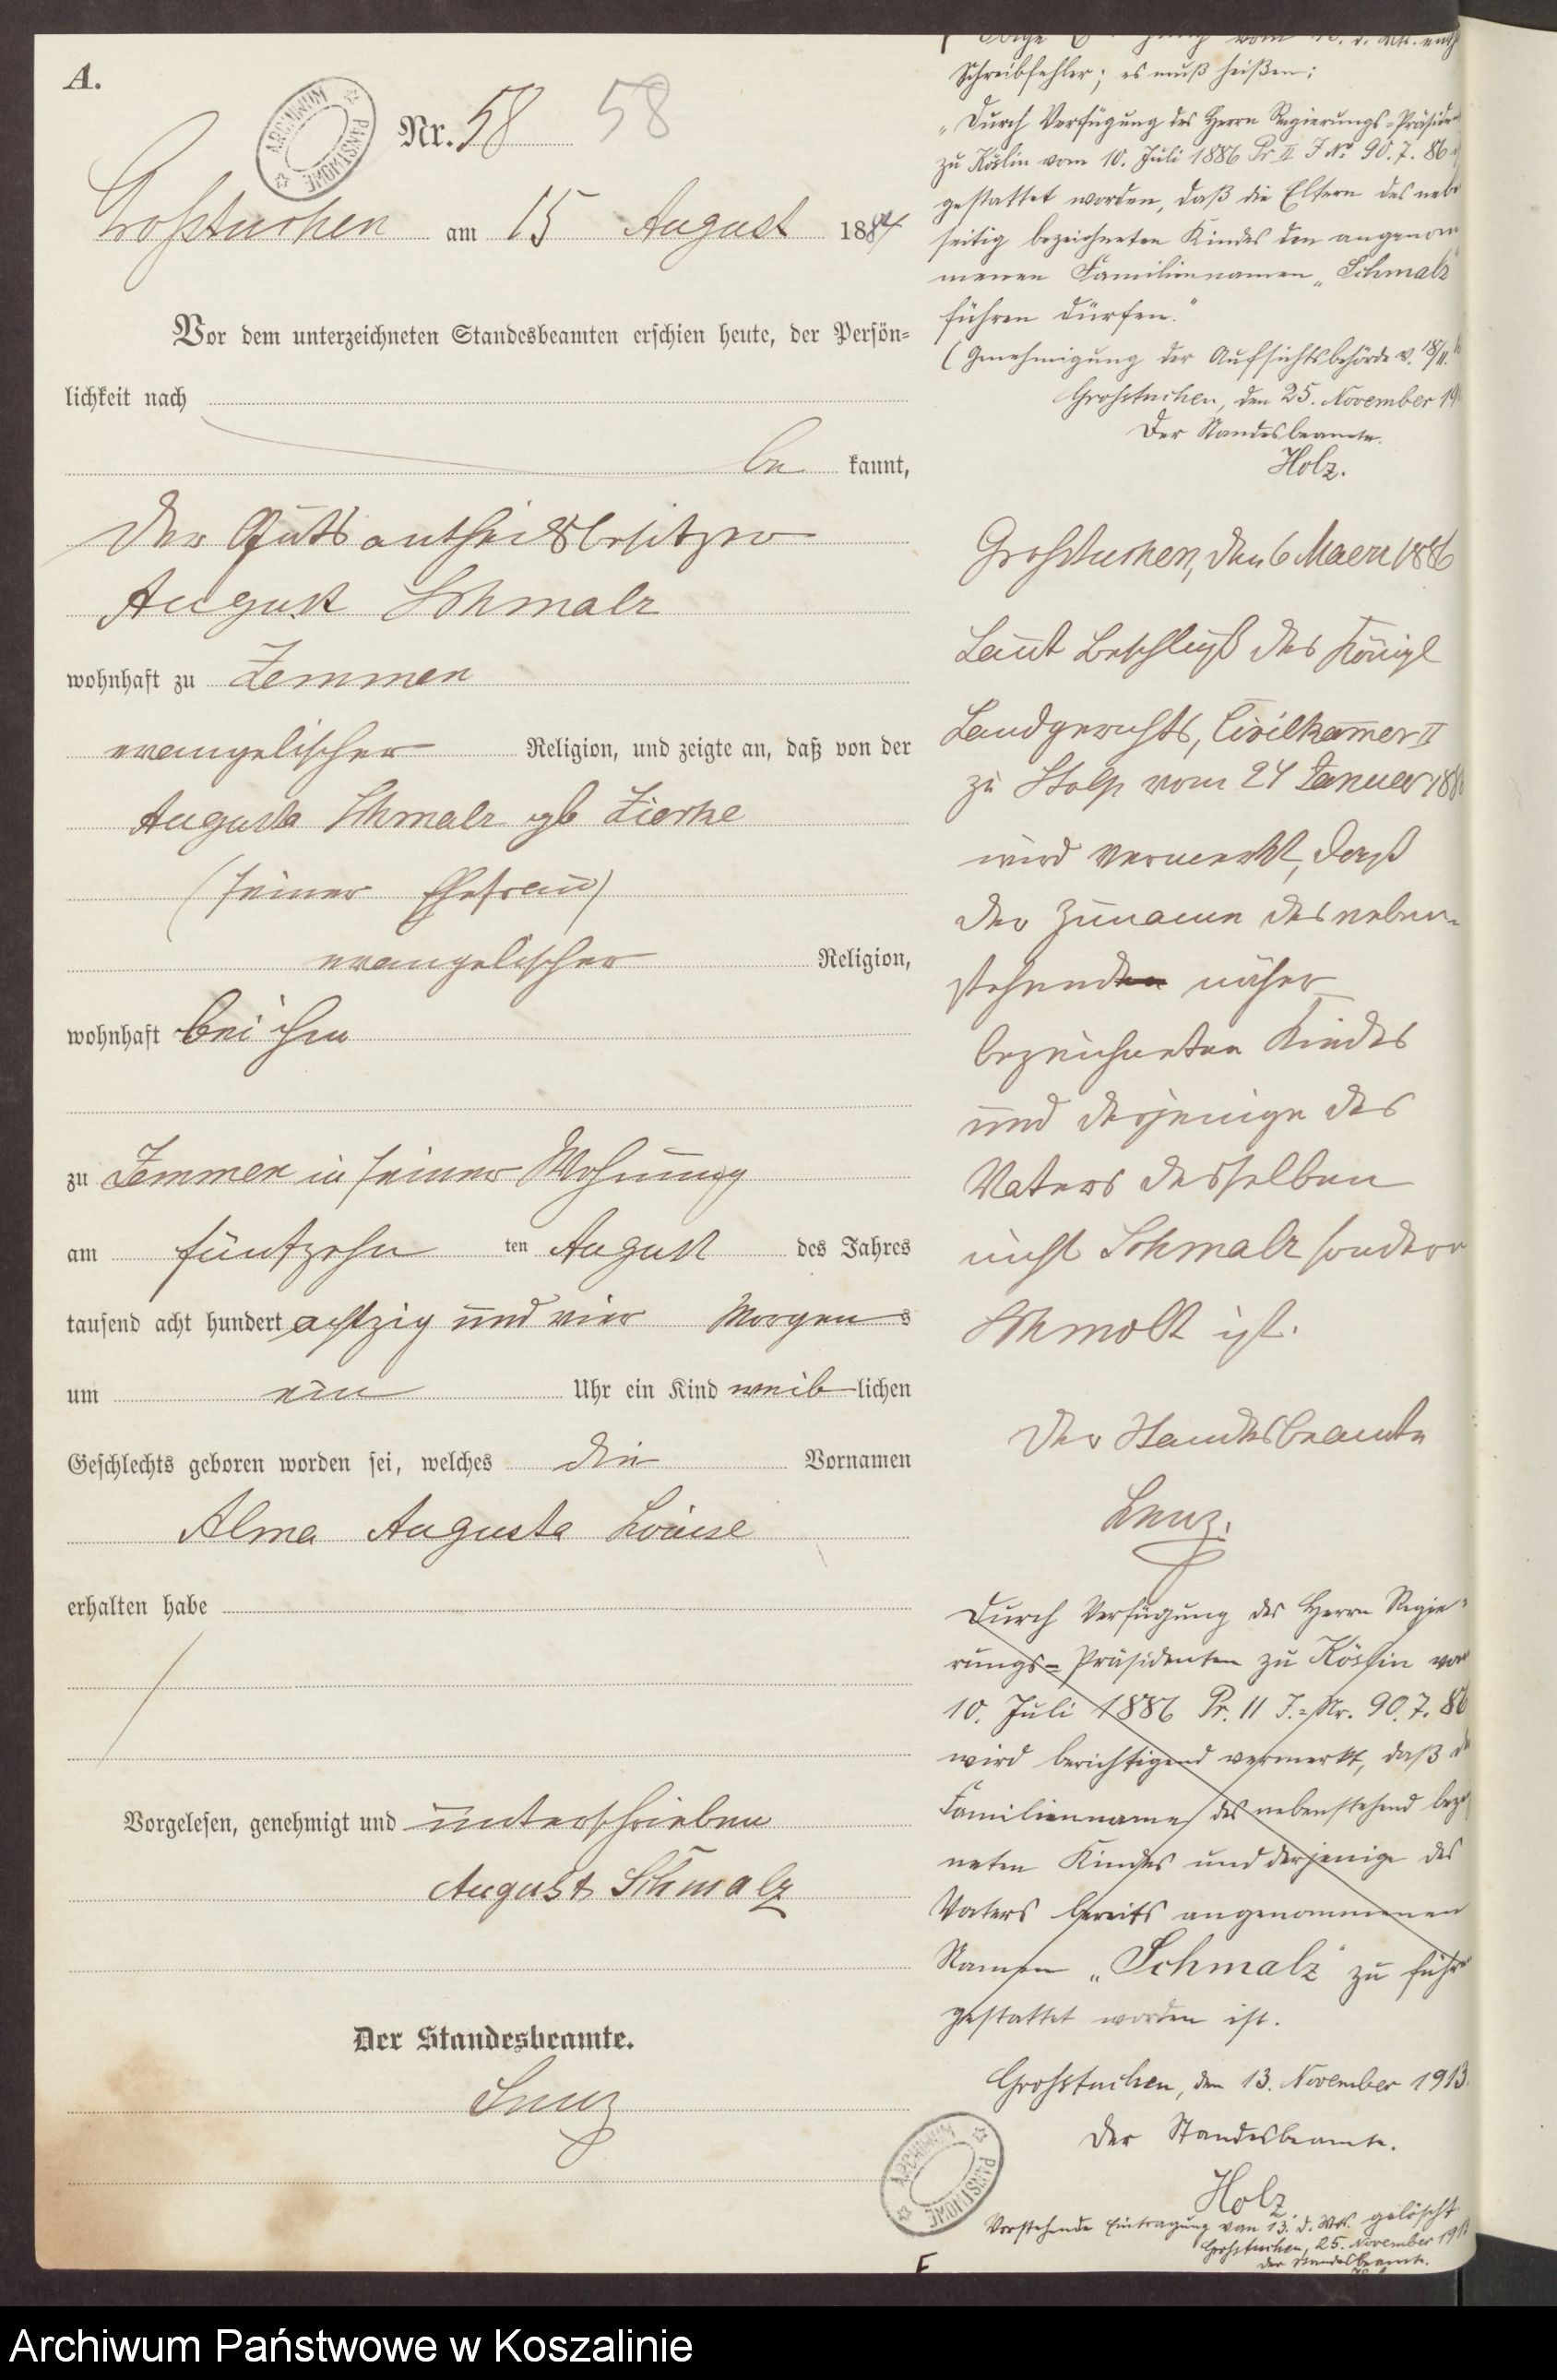 A.
ARCHIWUM PAŃSTWOWE
Nr. 58 58
Großtuchen am 15 August 1884
Vor dem unterzeichneten Standesbeamten erschien heute, der Persön=
lichkeit nach
be kannt,
der Gutsantheilsbesitzer
August Schmalz
wohnhaft zu Zemmen
evangelischer Religion, und zeigte an, daß von der
Augusta Schmalz gb Zierke
(seiner Ehefrau)
evangelischer Religion,
wohnhaft bei ihm
zu Zemmen in seiner Wohnung
am fünfzehn ten August des Jahres
tausend acht hundert achtzig und vier Morgens
um ein Uhr ein Kind weiblichen
Geschlechts geboren worden sei, welches die Vornamen
Alma Augusta Louise
erhalten habe
Vorgelesen, genehmigt und unterschrieben
August Schmalz
Der Standesbeamte.
Lenz
Schreibfehler; es muß heißen:
„Durch Verfügung des Herrn Regierungs=Präside
zu Köslin vom 10. Juli 1886 Pr II J No 90.7.86
gestattet worden, daß die Eltern des nebe
seitig bezeichneten Kindes den angenom
menen Familiennamen „Schmalz"
führen dürfen."
(Genehmigung der Aufsichtsbehörde v. 18/11.
Großtuchen, den 25. November 19
Der Standesbeamte.
Holz.
Großtuchen, den 6 Maerz 1886
Laut Beschluß des Königl
Landgerichts, Civilkammer II
zu Stolp vom 24 Januar 188
wird vermerkt, daß
der Zuname des neben-
stehend näher
bezeichneten Kindes
und derjenige des
Vaters desselben
nicht Schmalz sondern
Schmolt ist.
Der Standesbeamte
Lenz.
Durch Verfügung des Herrn Regie=
rungs=Präsidenten zu Köslin vom
10. Juli 1886 Pr. II J.=Nr. 90.7.86
wird berichtigend vermerkt, daß d
Familienname des nebenstehend beze
neten Kindes und derjenige des
Vaters bereits angenommenen
Namen „Schmalz" zu führ
gestattet worden ist.
Großtuchen, den 13. November 1913.
Der Standesbeamte.
Holz
Vorstehende Eintragung vom 13. d. Mts. gelöscht
Großtuchen, 25. November 191
Der Standesbeamte.
ARCHIWUM PAŃSTWOWE
F
Archiwum Państwowe w Koszalinie